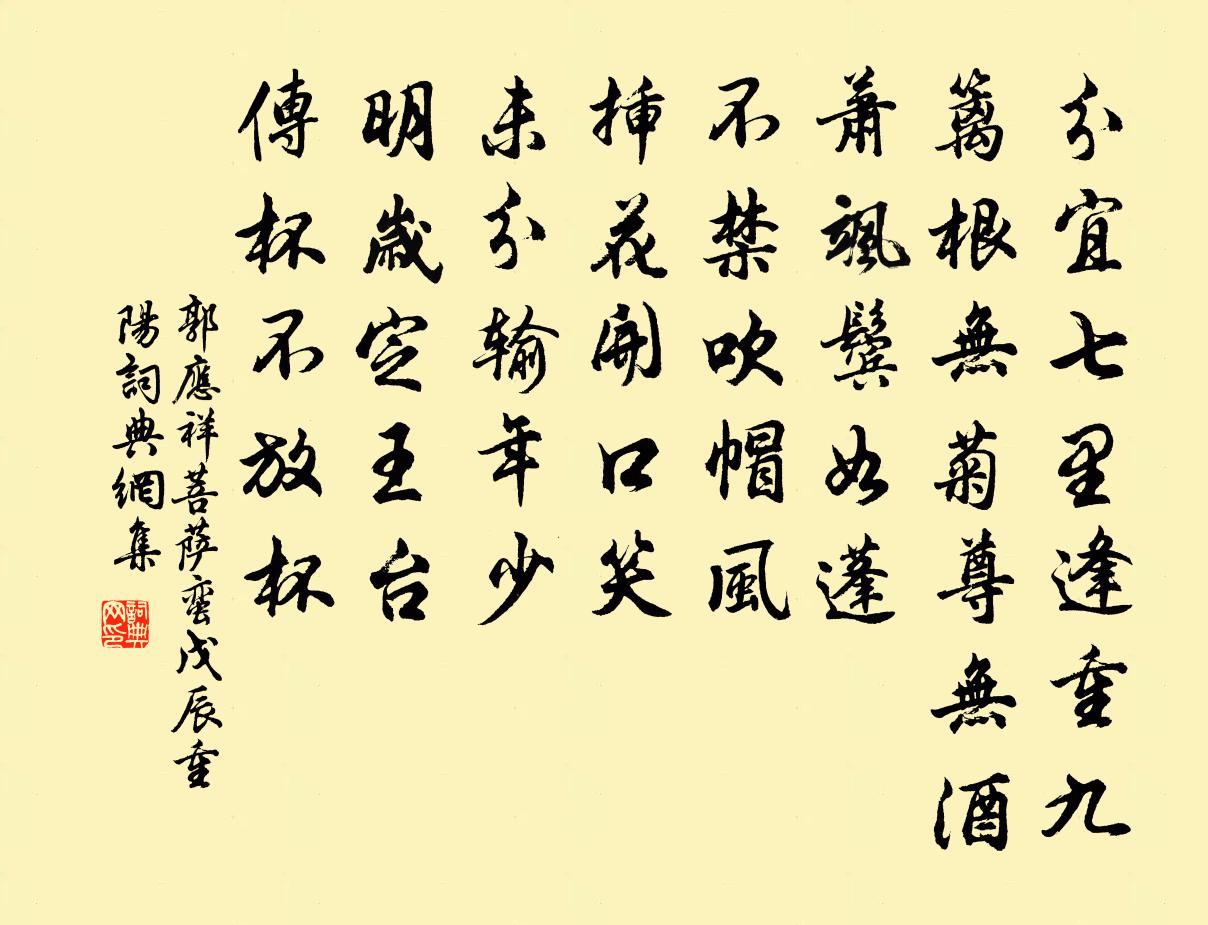 分宜七里逢重九
籬根無菊尊無酒
蕭颯鬢如蓬
不禁吹帽風
挿花開口笑
未分輸年少
明歲定王台
傳杯不放杯
郭應祥菩萨蛮戊辰重
陽詞典網集
詞典
网印